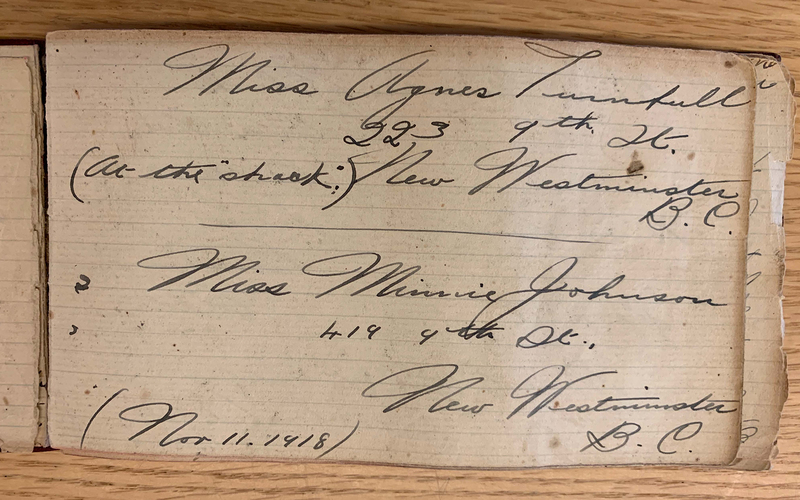 Miss Agnes Turnbull
223 9th. St.
(At the "shack".) New Westminster
B. C.
Miss Minnie Johnson
419 9th St.,
New Westminster
(Nov 11. 1918) B. C.